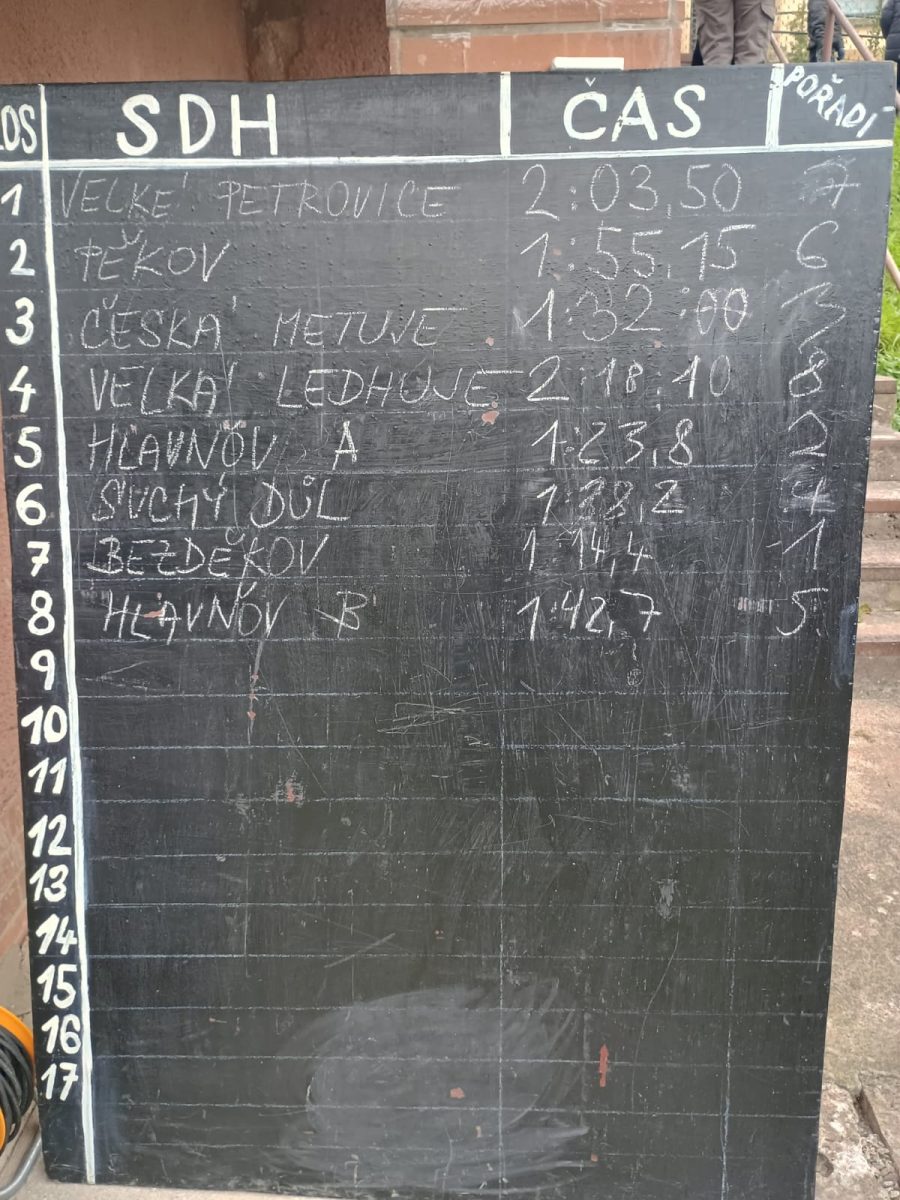 LOS SDH ČAS POŘADÍ
1 VELKÉ PETROVICE 2:03,50 7
2 PĚKOV 1:55,15 6
3 ČESKÁ METUJE 1:32:00 3
4 VELKÁ LEDHUJE 2:18:10 8
5 HLAVŇOV A 1:23,8 2
6 SUCHÝ DŮL 4
7 BEZDĚKOV 1:14,4 1
8 HLAVŇOV B 1:42,7 5
9
10
11
12
13
14
15
16
17